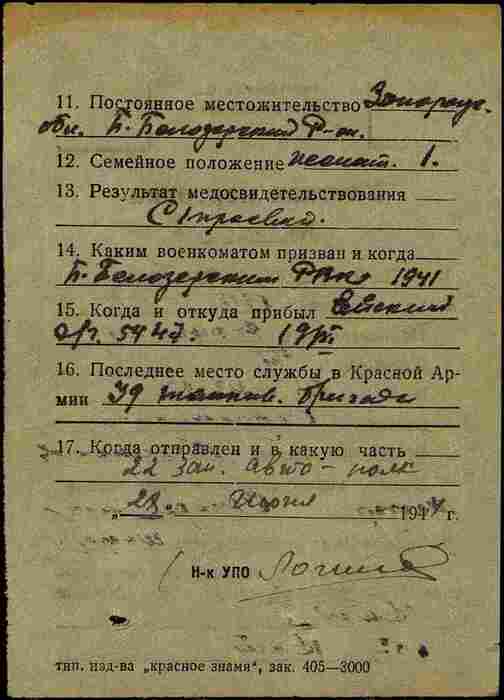 11. Постоянное местожительство Запорож.
обл. Б. Белозерский р-он.
12. Семейное положение женат. 1.
13. Результат медосвидетельствования
Строевой.
14. Каким военкоматом призван и когда
Б. Белозерским РВК 1941
15. Когда и откуда прибыл Ейский
19/VI
16. Последнее место службы в Красной Ар-
мии 39 танков. бригада
17. Когда отправлен и в какую часть
22 зап. авто-полк
„28„ Июня 1944 г.
Н-к УПО
тип. изд-ва „красное знамя“, зак. 405—3000